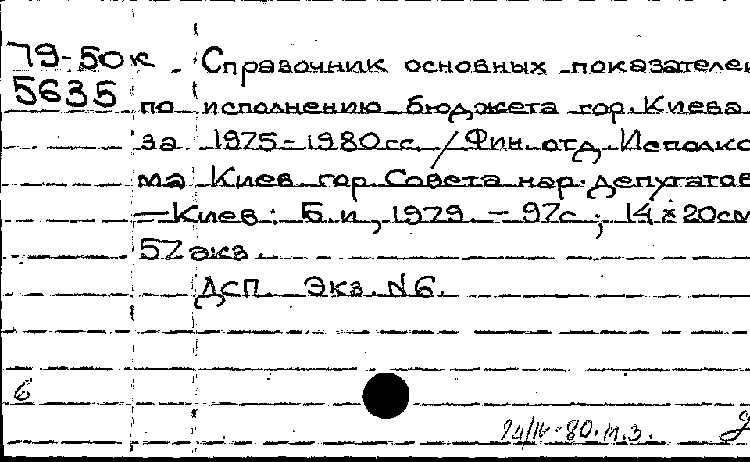 79-50к Справочник основных показателей
5635 по исполнению бюджета гор. Киева
за 1975-1980 гг. / Фин. отд. Исполко
ма Киев гор. Совета нар. депутатов
— Киев: Б. и, 1979. - 97с; 14 × 20см
57 экз.
ДСП. Экз. №6.
6